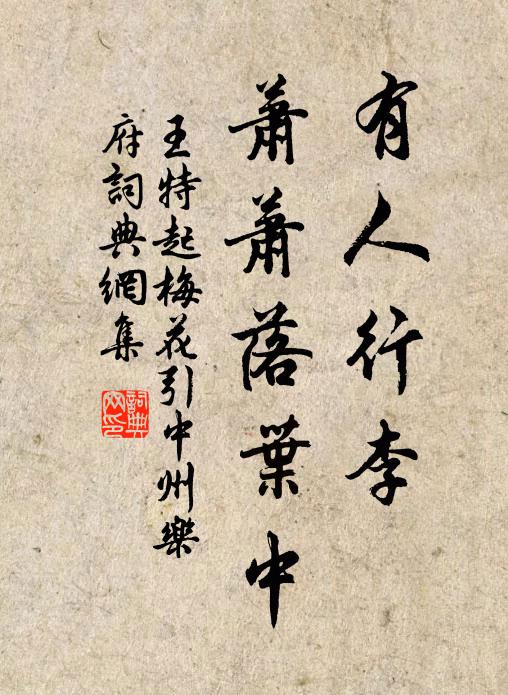 有人行李
蕭蕭落葉中
王特起梅花引中州樂
府詞典網集
詞典網印